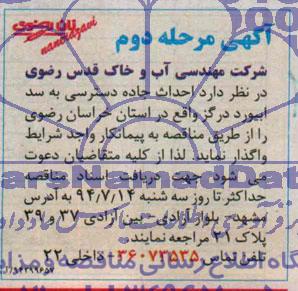 نان رضوی
nanerazavi
آگهی مرحله دوم
شرکت مهندسی آب و خاک قدس رضوی
در نظر دارد احداث جاده دسترسی به سد
ابیورد درگز واقع در استان خراسان رضوی
را از طریق مناقصه به پیمانکار واجد شرایط
واگذار نماید. لذا از کلیه متقاضیان دعوت
می شود جهت دریافت اسناد مناقصه
حداکثر تا روز سه شنبه ۹۴/۷/۱۴ به آدرس
مشهد- بلوار آزادی - بین آزادی ۳۷ و ۳۹
پلاک ۲۱ مراجعه نمایند.
تلفن تماس ۳۶۰۷۳۵۳۵ - داخلی ۲۲